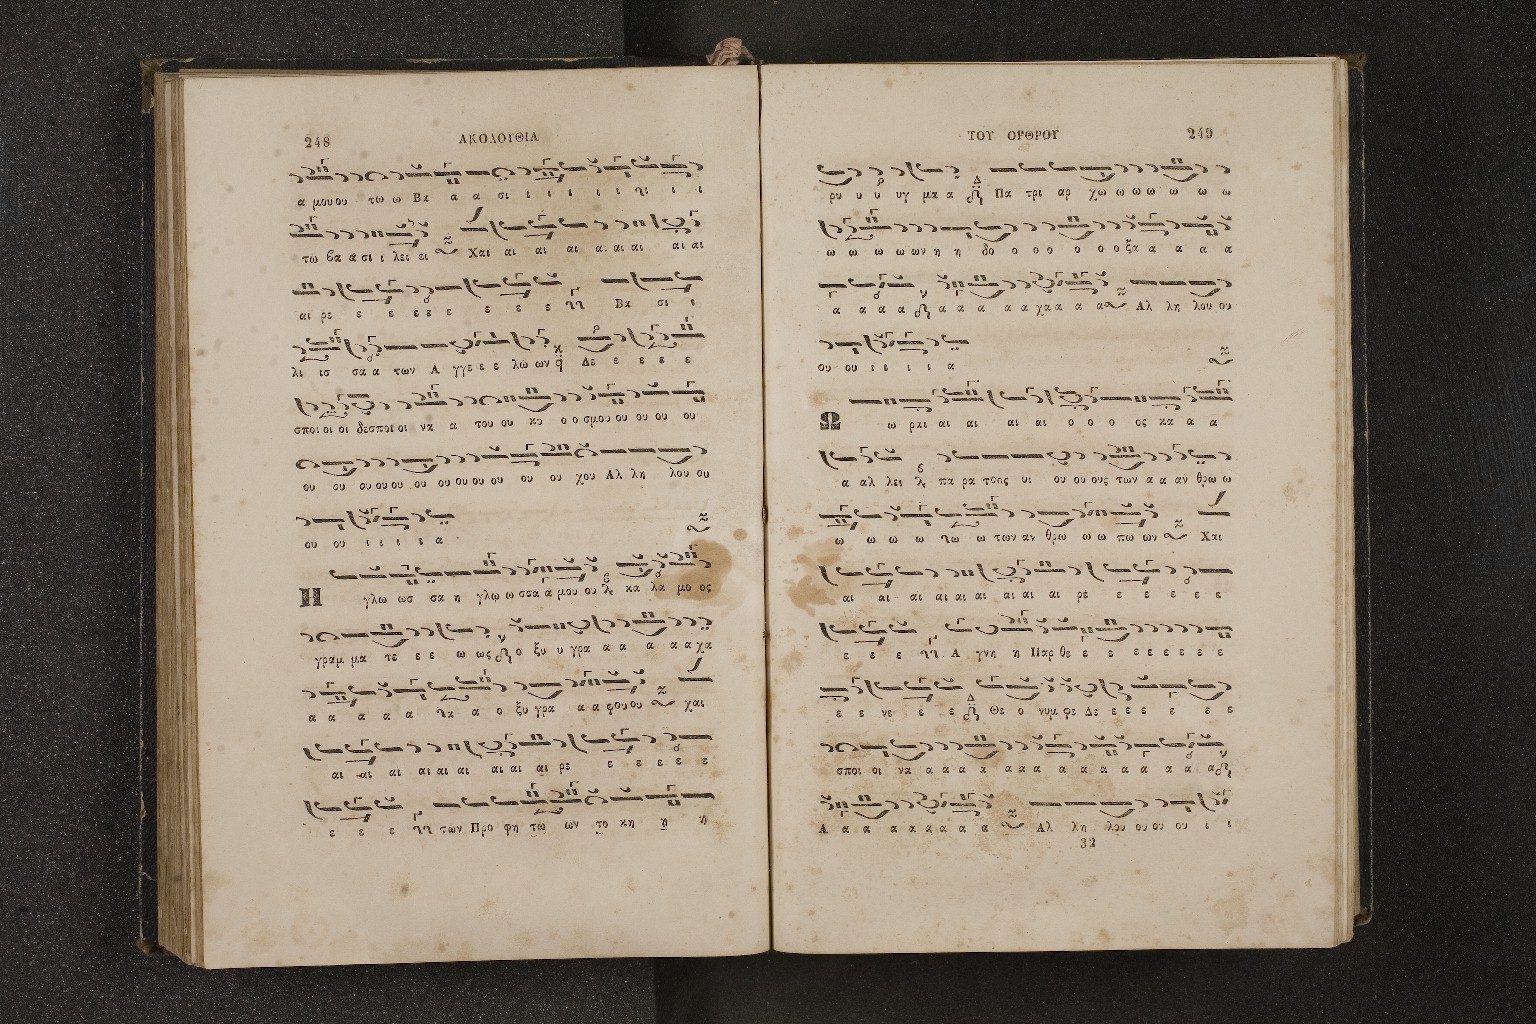 248 ΑΚΟΛΟΥΘΙΑ
α μου ου τω ω Βα α α σι ι ι ι ι ι ι ι ι
τω βα α σι ι λει ει Χαι αι αι αι αι αι αι αι αι
αι ρε ε ε ε ε ε ε ε ε Βα σι ι
λι ις σα α των Α γγε ε ε λω ων Δε ε ε ε ε
σποι οι οι δεσποι οι να α του ου κο ο ο σμου ου ου ου ου
ου ου ου ου ου ου ου ου ου ου ου ου χου Αλ λη λου ου
ου ου ι ι ι ι α
Η γλω ως σα η γλω ω σσα α μου ου κα λα μο ος
γραμ μα τε ε ε ω ως ο ξυ υ γρα α α α α α χα
α α α α α χα α ο ξυ γρα α α φου ου χαι
αι αι αι αι αι αι αι αι αι ρε ε ε ε ε ε
ε ε ε των Προ φη τω ων το κη η η
ΤΟΥ ΟΡΘΡΟΥ 249
ρυ υ υ υγ μα α Πα τρι αρ χω ω ω ω ω ω ω
ω ω ω ω ων η η δο ο ο ο ο ο ο ξα α α α α
α α α α α α α α α χα α α α Αλ λη λου ου
ου ου ι ι ι ι α
Ω ω ραι αι αι αι αι ο ο ο ος κα α α
α αλ λει πα ρα τους υι ου ου ους των α α αν θρω ω
ω ω ω ω χω ω των αν θρω ω ω πω ων Χαι
αι αι αι αι αι αι αι αι αι ρε ε ε ε ε ε
ε ε ε Α γνη η Παρ θε ε ε ε ε ε ε ε ε
ε ε νε ε ε Θε ο νυμ φε Δε ε ε ε ε ε ε
σποι οι οι να α α α α α α α α α α α α α α α
Α α α α α α α α α Αλ λη λου ου ου ου ι ι
32